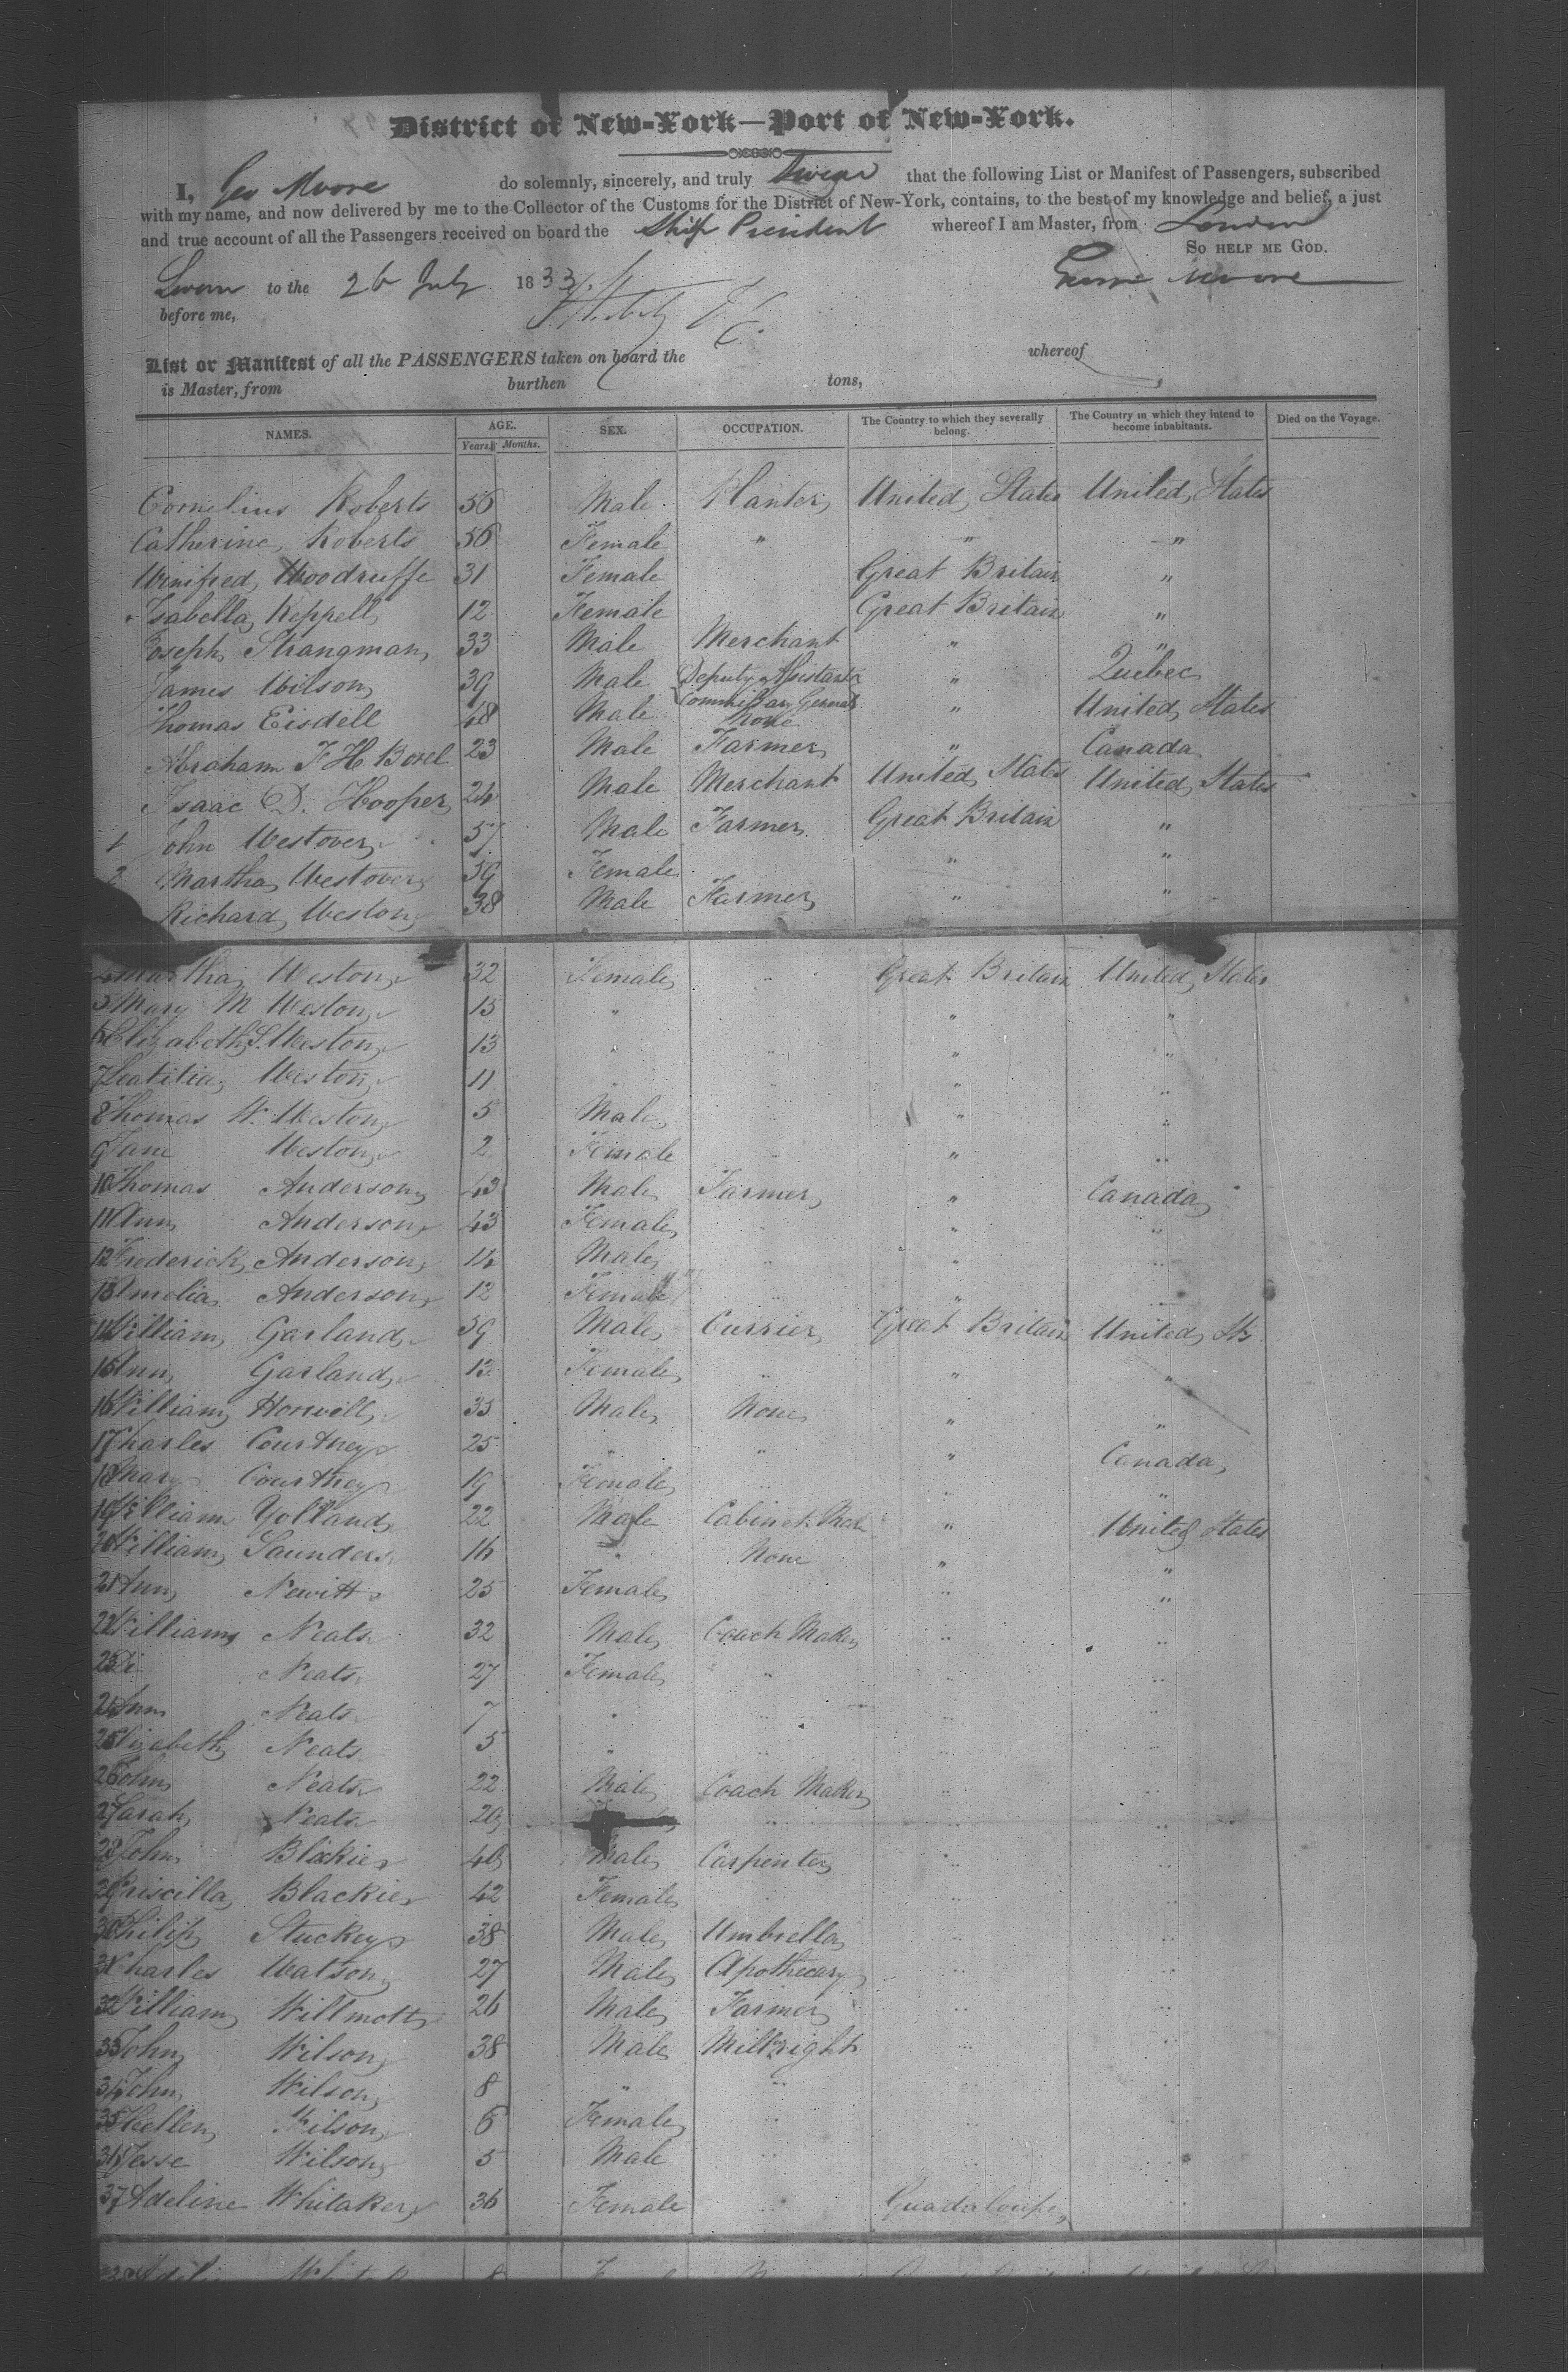 District of New-York—Port of New-York.
I, Geo Moore do solemnly, sincerely, and truly Swear that the following List or Manifest of Passengers, subscribed
with my name, and now delivered by me to the Collector of the Customs for the District of New-York, contains, to the best of my knowledge and belief, a just
and true account of all the Passengers received on board the Ship President whereof I am Master, from London
So help me God.
Sworn to the 26 July 1833 George Moore
before me,
List or Manifest of all the PASSENGERS taken on board the whereof
is Master, from burthen tons,
NAMES. AGE. SEX. OCCUPATION. The Country to which they severally belong. The Country in which they intend to become inhabitants. Died on the Voyage.
Years. Months.
Cornelius Roberts 56 Male Planter United States United States
Catherine Roberts 56 Female " " "
Winifred Woodruffe 31 Female Great Britain "
Isabella Keppell 12 Female Great Britain "
Joseph Strangman 33 Male Merchant " "
James Wilson 39 Male Deputy Assistant Commissary General " Quebec
Thomas Eisdell 48 Male None " United States
Abraham F H 23 Male Farmer " Canada
Isaac D. Hooper 24 Male Merchant United States United States
1 John Westover 57 Male Farmer Great Britain "
2 Martha Westover 59 Female " "
Richard Weston 38 Male Farmer " "
Martha Weston 32 Female " Great Britain United States
5 Mary M Weston 15 " " "
6 Elizabeth S. Weston 13 " " " "
7 Leatitia Weston 11 " " "
8 Thomas W. Weston 5 Male " " "
9 Jane Weston 2 Female " " "
10 Thomas Anderson 43 Male Farmer " Canada
11 Ann Anderson 43 Female " " "
12 Frederick Anderson 14 Male " " "
13 Amelia Anderson 12 Female " " "
14 William Garland 59 Male Currier Great Britain United Sts
15 Ann Garland 13 Female " " "
16 William Honwill 35 Male None " "
17 Charles Courtney 25 " " " Canada
18 Mary Courtney 19 Female " " "
19 William Yolland 22 Male Cabinet Mak " United States
20 William Saunders 16 " None " "
21 Ann Newitt 25 Female " "
22 William Neats 32 Male Coach Maker " "
23 Neats 27 Female " " "
24 Ann Neats 7 " " " "
25 Elizabeth Neats 5 " " " "
26 John Neats 22 Male Coach Maker " "
27 Sarah Neats 20 " " "
28 John Blackie Male Carpenter " "
29 Priscilla Blackie 42 Female " " "
30 Philip Stuckey 38 Male Umbrella " "
31 Charles Watson 27 Male Apothecary " "
32 William Willmott 26 Male Farmer " "
33 John Wilson 38 Male Millwright " "
34 John Wilson 8 " " " "
35 Hellen Wilson 6 Female " " "
36 Jesse Wilson 5 Male " " "
37 Adeline Whitaker 36 Female " Guadaloupe "